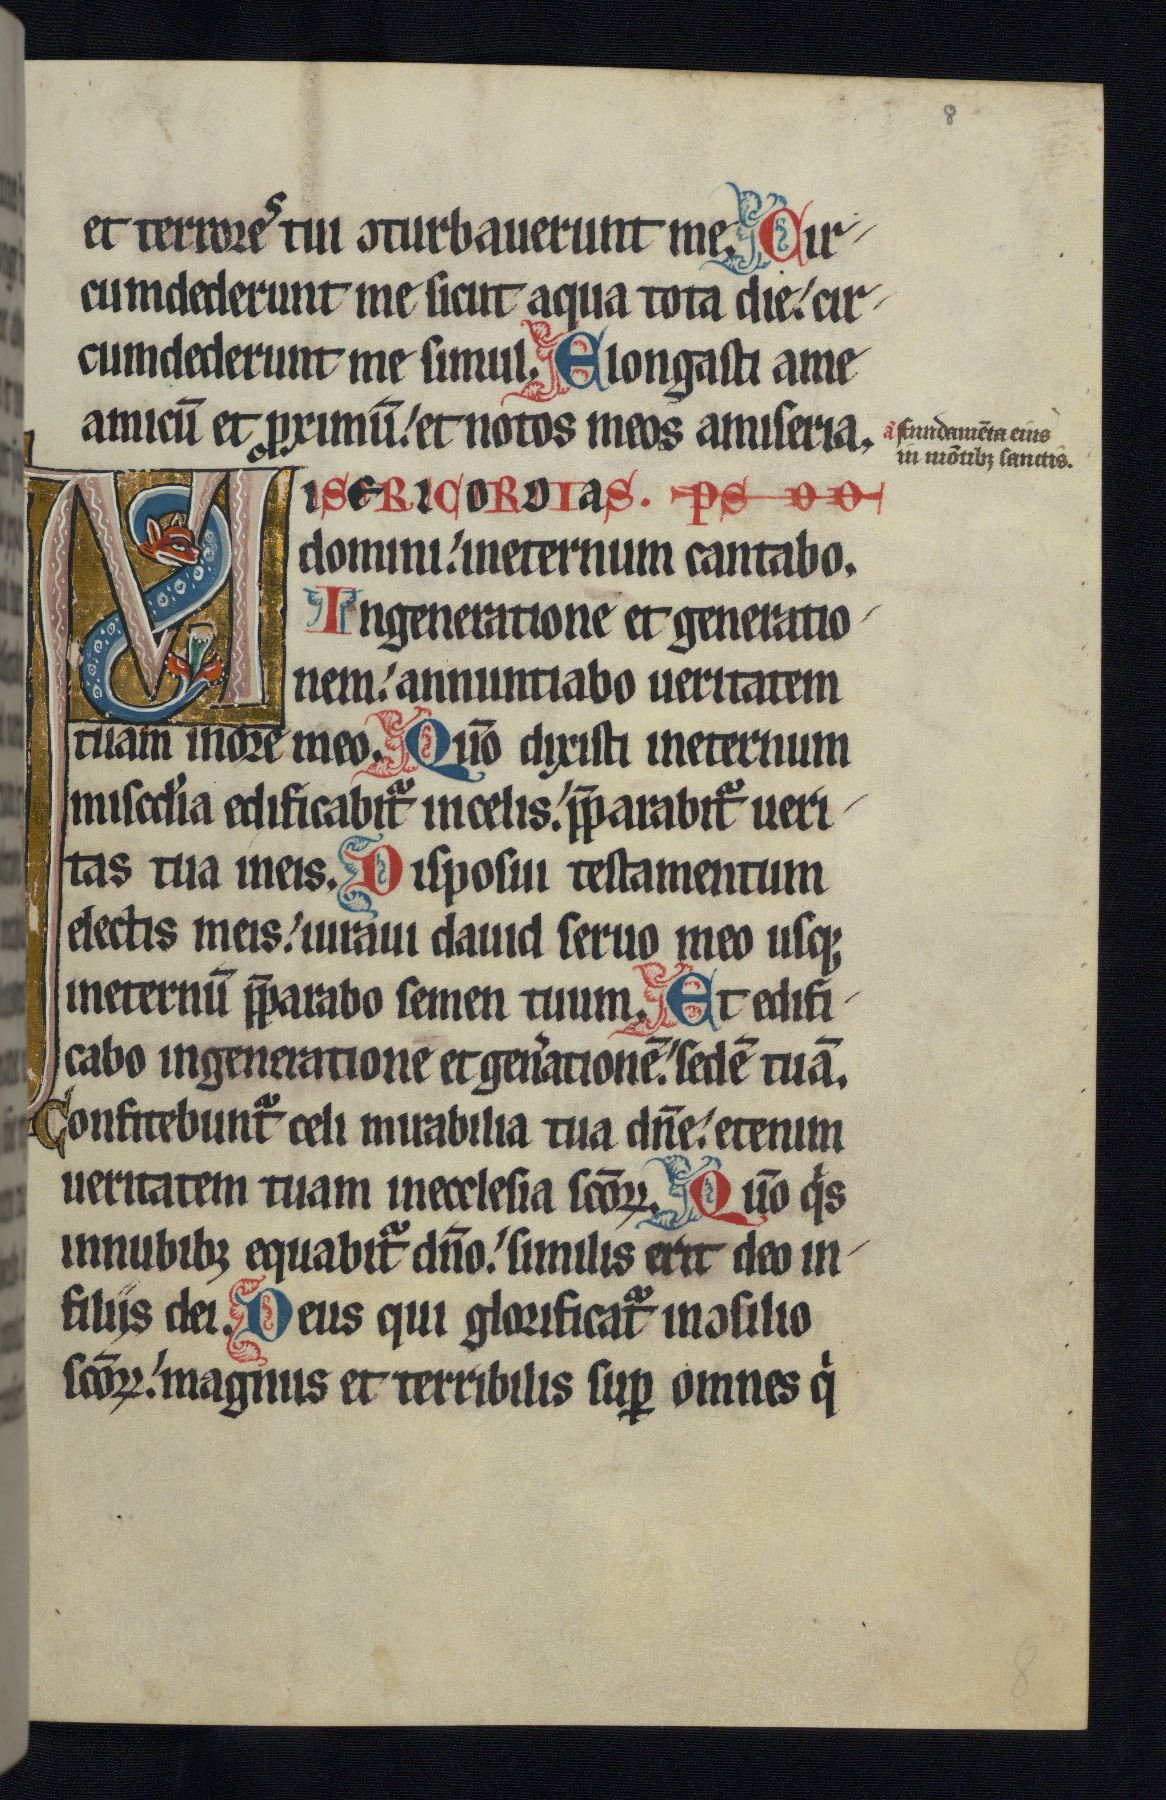 8
et terrores tui ɔturbauerunt me. Cir
cumdederunt me sicut aqua tota die: cir
cumdederunt me simul. Elongasti ame
amicū et ꝓximū: et notos meos amiseria.
a fundamēta eius
in mōtibꝫ sanctis.
MISERICORDIAS. PS DO
domini: ineternum cantabo.
Ingeneratione et generatio
nem: annuntiabo ueritatem
tuam inore meo. Quō dixisti ineternum
miscd'ia edificabit᷑ incelis: p̄parabit᷑ ueri
tas tua ineis. Disposui testamentum
electis meis: iuraui dauid seruo meo usqꝫ
ineternū p̄parabo semen tuum. Et edifi
cabo ingeneratione et gen'ationē: sedē tuā.
Confitebunt᷑ celi mirabilia tua dn̄e: etenim
ueritatem tuam inecclesia scōꝝ. Quō qͥs
innubibꝫ equabit᷑ dn̄o: similis erit deo in
filijs dei. Deus qui glorificat᷑ inɔsilio
scōꝝ: magnus et terribilis suꝑ omnes qͥ
8